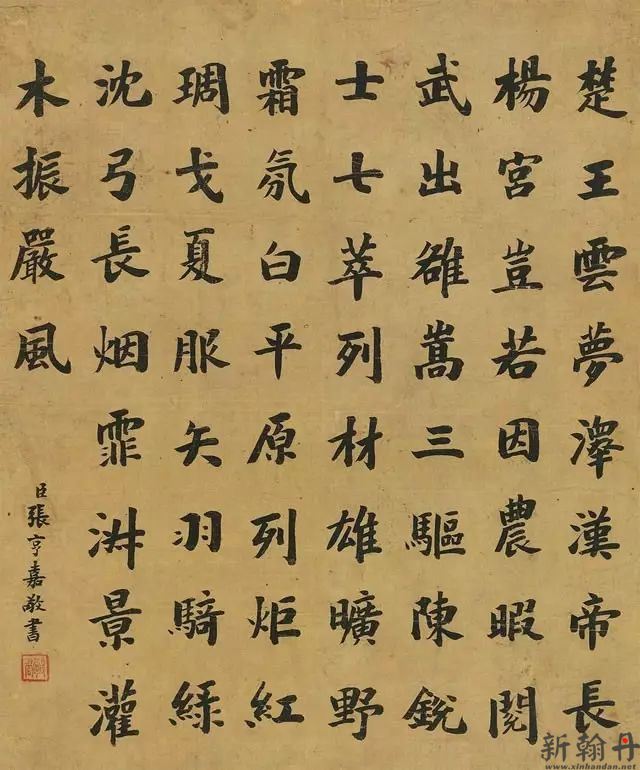 楚王雲夢澤漢帝長
楊宮豈若因農暇閱
武出雒嵩三驅陳銳
士七萃列材雄曠野
霜氛白平原列炬紅
琱戈夏服矢羽騎綠
沈弓長烟霏景灌
木振嚴風
臣張亨嘉敬書
新翰丹
www.xinhandan.net